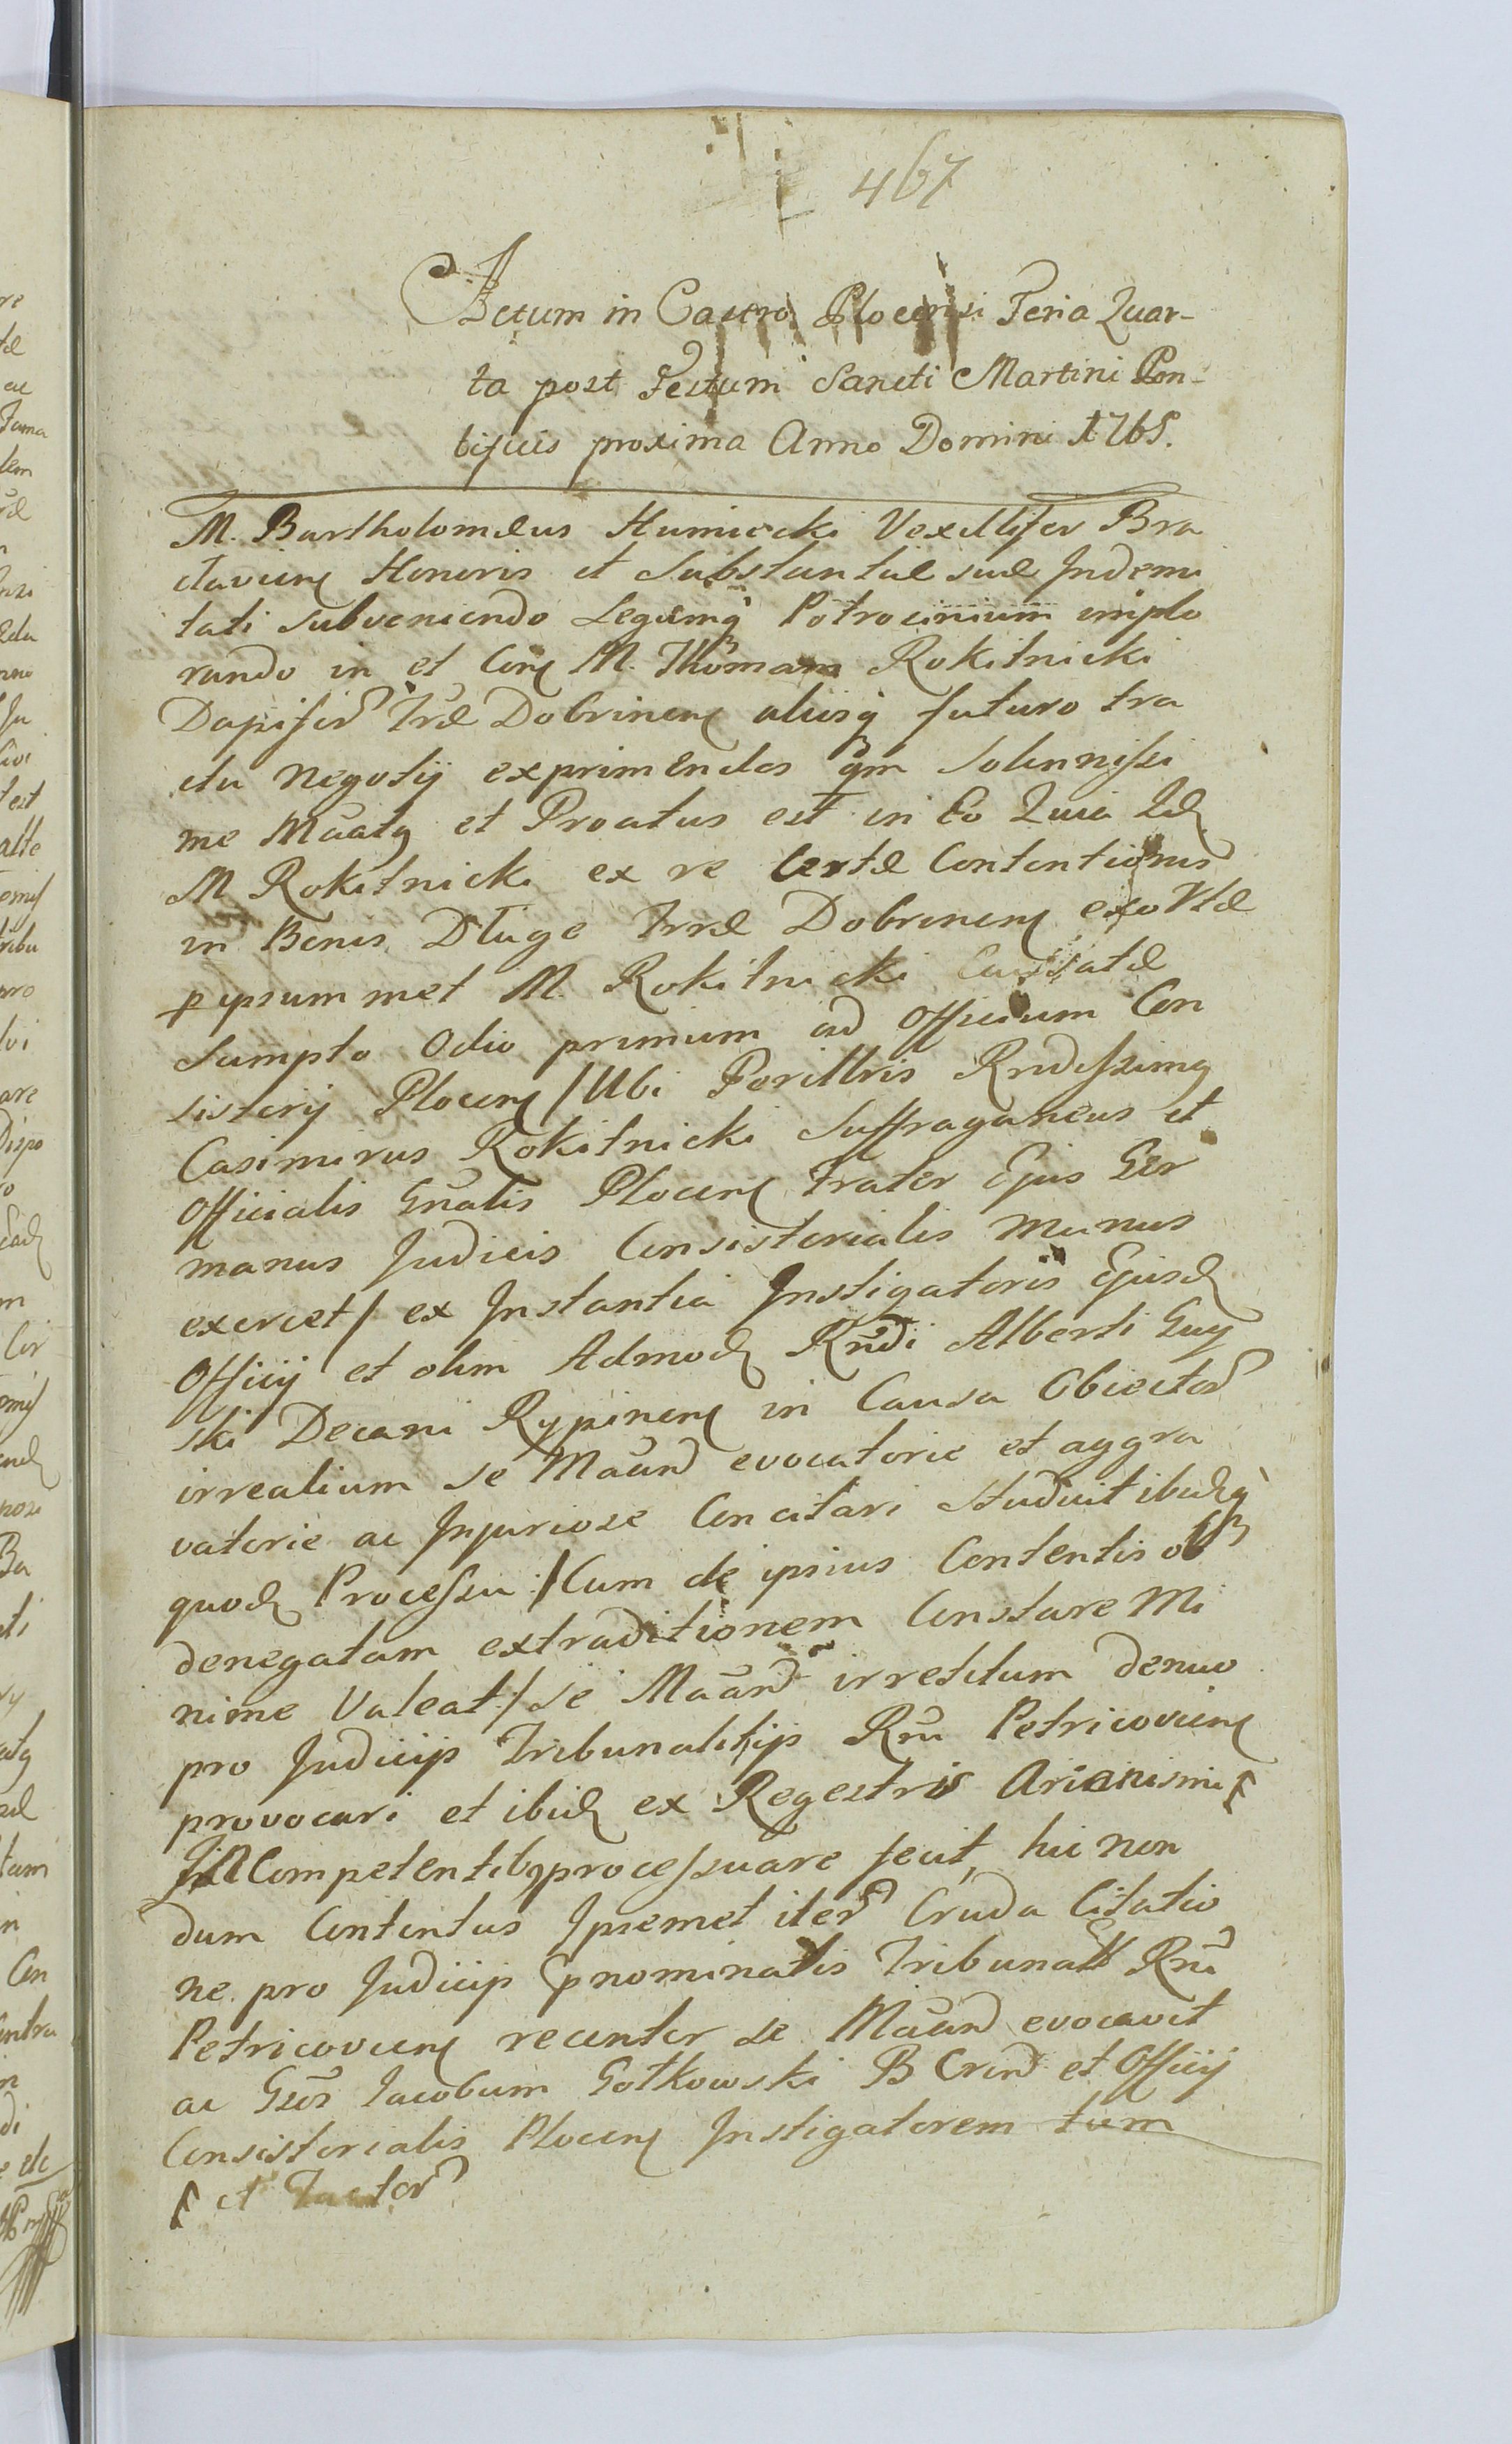 467
Actum in Castro Plocensi Feria Quar-
ta post Festum Sancti Martini Pon-
tificis proxima Anno Domini 1765.
M. Bartholomæus Humiecki Vexillifer Bra
claviens Honoris et Substantiæ suæ Indemni
tati subveniendo Legumq Potrocinium implo
rando in et Con M. Thomam Rokitnicki
Dapiferũ Træ Dobrinens aliisq futuro tra
ctu negotij exprimendos qm Solennissi
me Maatq et Proatus est in Eo Quia Id
M Rokitnicki ex re Certæ Contentionis
in Bonis Długe Trræ Dobrinens exortæ
p ipsummet M. Rokitnicki Caussatæ
Sumpto Odio primum ad Officium Con
sistorij Plocens /Ubi Perillris Rndissimq
Casimirus Rokitnicki Suffraganeus et
Officialis Gñalis Plocens Frater Ejus Ger
manus Judicis Consistorialis munus
exercet/ ex Instantia Instigatoris Ejusd
Officij et olim Admod Rñdi Alberti Guy
ski Decani Rypinens in Causa Obiector
irrealium se Maañd evocatorie et aggra
vatorie ac Injuriose Concitari studuit ibidq
quod Processu /Cum de ipsius Contentis ob
denegatam extraditionem Constare Mi
nime Valeat:/ se Maañd irretitum denuo
pro Judicijs Tribunalitijs Rñi Petricoviens
provocari et ibid ex Regestris Arianismi
Incompetentibq processuare fecit, hic non
dum Contentus Ipsemet iter Cruda Citatio
ne pro Judicijs pnominatis Tribunal Rñi
Petricoviens recenter se Maañd evocavit
ac Gsos Jacobum Gotkowski B Crnd et Officij
Consistorialis Plocens Instigatorem tum
et Factor